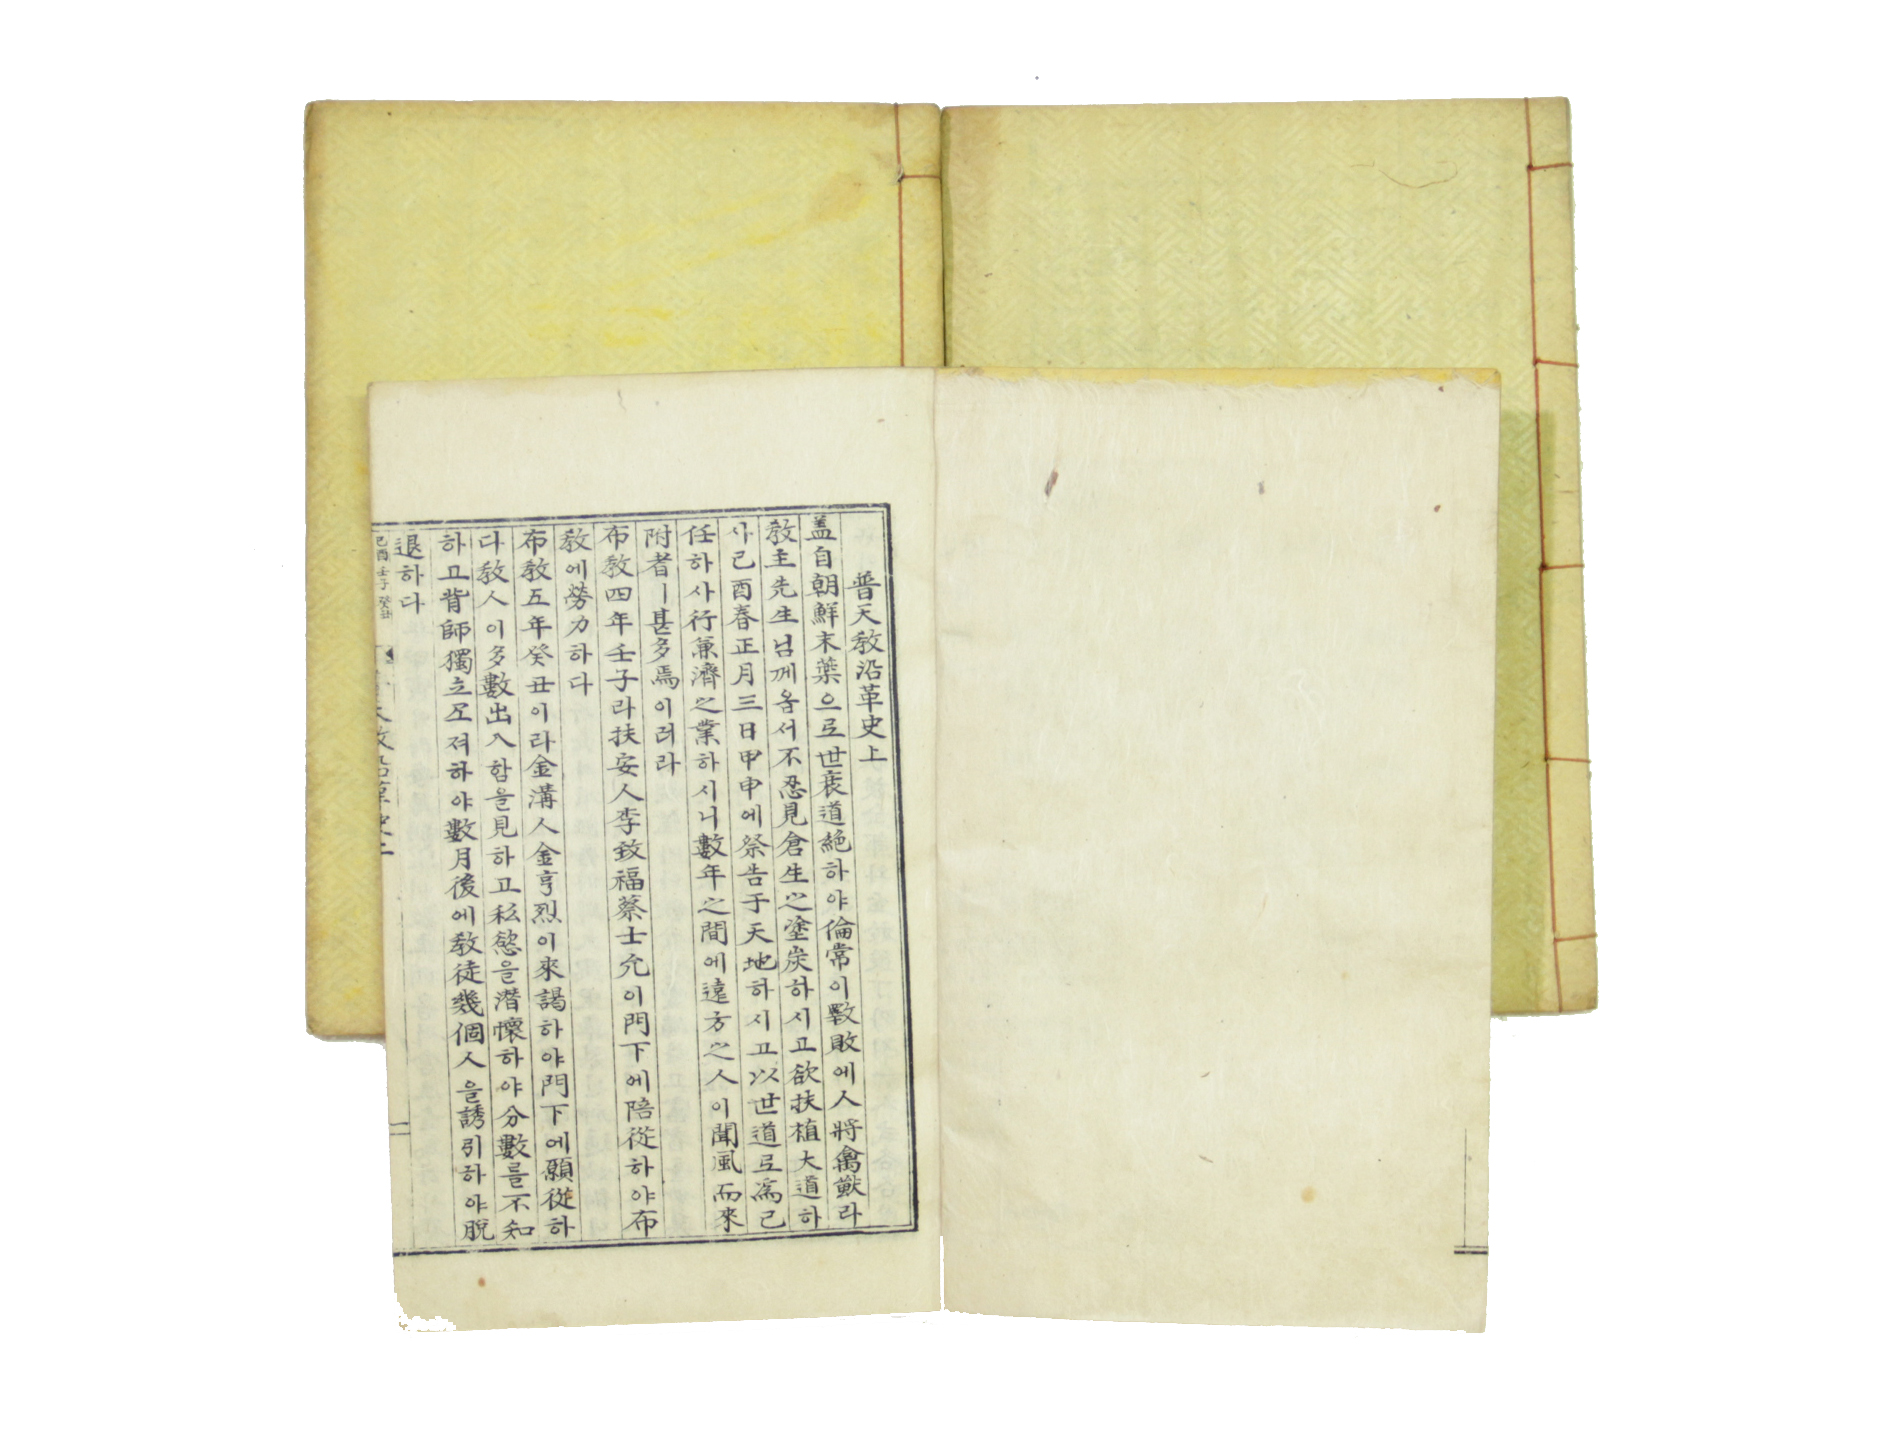 普天教沿革史上
盖自朝鮮末葉으로世衰道絶하야倫常이斁敗에人將禽獸라
教主先生님께옵서不忍見倉生之塗炭하시고欲扶植大道하
사己酉春正月三日甲申에祭告于天地하시고以世道로爲己
任하사行兼濟之業하시니數年之間에遠方之人이聞風而來
附者ㅣ甚多焉이러라
布教四年壬子라扶安人李致福蔡士允이門下에陪從하야布
教에勞力하다
布教五年癸丑이라金溝人金亨烈이來謁하야門下에願從하
다教人이多數出入함을見하고私慾을潛懷하야分數를不知
하고背師獨立로져하야數月後에教徒幾個人을誘引하야脫
退하다
己酉 壬子 癸丑
天教沿革史上